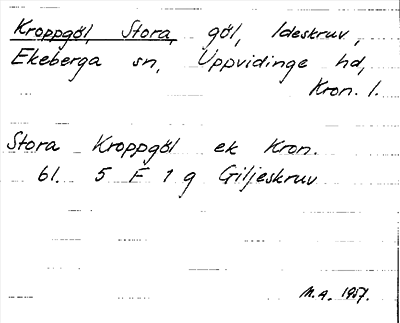 Kroppgöl, Stora, göl, Ideskruv,
Ekeberga sn, Uppvidinge hd,
Kron. l.
Stora Kroppgöl ek Kron.
bl. 5 F 1 g Giljeskruv
M.A. 1957.